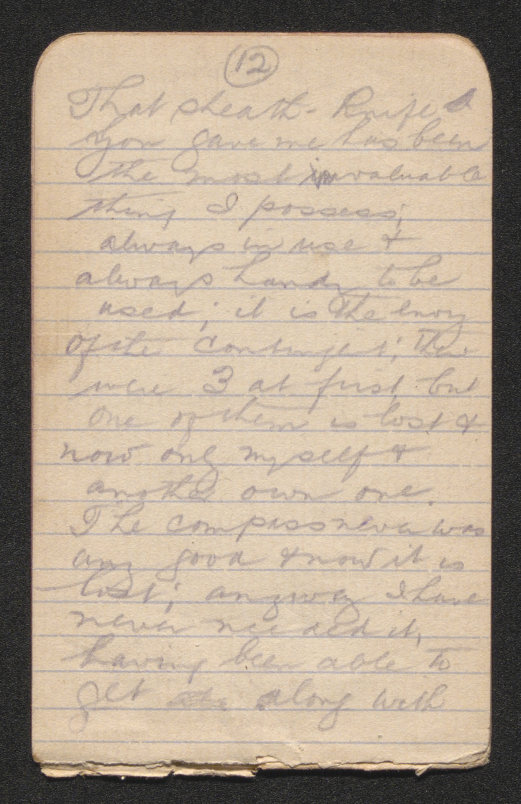 (12)
That sheath-Knife
you gave me has been
the most invaluable
thing I possess;
always in use &
always handy to be
used; it is the envy
of the Contingent; there
were 3 at first but
one of them is lost &
now only myself &
another own one.
The compass never was
any good & now it is
lost; anyway I have
never needed it,
having been able to
get along with